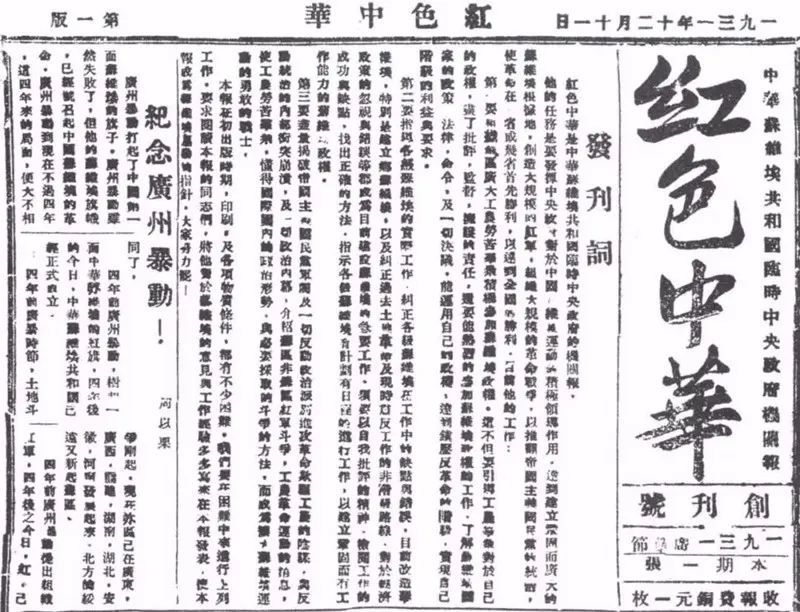 一九三一年十二月十一日
紅色中華
第一版
中華蘇維埃共和國臨時中央政府機關報
紅色中華
創刊號
一九三一廣暴節
本期一張
收報費銅元一枚
發刊詞
紅色中華是中華蘇維埃共和國臨時中央政府的機關報,
他的任務是要發揮中央政府對於中國蘇維埃運動的積極領導作用,達到建立鞏固而廣大的
蘇維埃根據地,創造大規模的紅軍,組織大規模的革命戰爭,以推翻帝國主義國民黨的統治,
使革命在一省或幾省首先勝利,以達到全國的勝利,目前他的工作:
第一要組織蘇區廣大工農勞苦羣衆積極參加蘇維埃政權,這不但要引導工農羣衆對於自己
的政權,盡了批評,監督,擁護的責任,還要能熱烈的參加蘇維埃政權的工作,了解蘇維埃國
家的政策,法律,命令,及一切決議,能運用自己的政權,達到鎮壓反革命的階級,實現自己
階級的利益與要求。
第二要指導各級蘇維埃的實際工作,糾正各級蘇維埃在工作中的缺點與錯誤,目前改造蘇
維埃,特別是建立鄉蘇維埃,以及糾正過去土地革命及現時肅反工作的非階級路線,對於經濟
政策的忽視與錯誤等都成爲目前建設蘇維埃的急要工作,須要以自我批評的精神,檢閱工作的
成功與缺點,找出正確的方法,指示各級蘇維埃有計劃有日程的進行工作,以建立鞏固而有工
作能力的蘇維埃政權。
第三要盡量揭破帝國主義國民黨軍閥及一切反動政治派別進攻革命欺騙工農的陰謀,與反
動統治的內部衝突崩潰,及一切政治內幕,介紹蘇區非蘇區紅軍斗爭,工農革命運動的消息,
使工農勞苦羣衆,懂得國際國內的政治形勢,與必要採取的斗爭的方法,而成爲擴大蘇維埃運
動的勇敢的戰士。
本報在初出版時期,印刷,及各項物質條件,都有不少困難,我們要在困難中來進行上列
工作,要求閱讀本報的同志們,將他對於蘇維埃的意見與工作經驗多多寫來在本報發表,使本
報成爲蘇維埃運動的指針,大家努力罷!
紀念廣州暴動!
何以果
廣州暴動打起了中國第一
面蘇維埃的旗子,廣州暴動雖
然失敗了,但他的蘇維埃旗幟
,已經號召起中國蘇維埃的革
命,廣州暴動到現在不過四年
,這四年來的局面,便大不相
同了。
四年前廣州暴動,樹起一
面中華蘇維埃的紅旗,四年後
的今日,中華蘇維埃共和國已
經正式成立。
四年前廣暴時節,土地斗
爭剛起,現在蘇區已在廣東,
廣西,福建,湖南,湖北,安
徽,河南發展起來,北方的綏
遠又新起蘇區。
四年前廣州暴動提出組織
工軍,四年後之今日,紅已